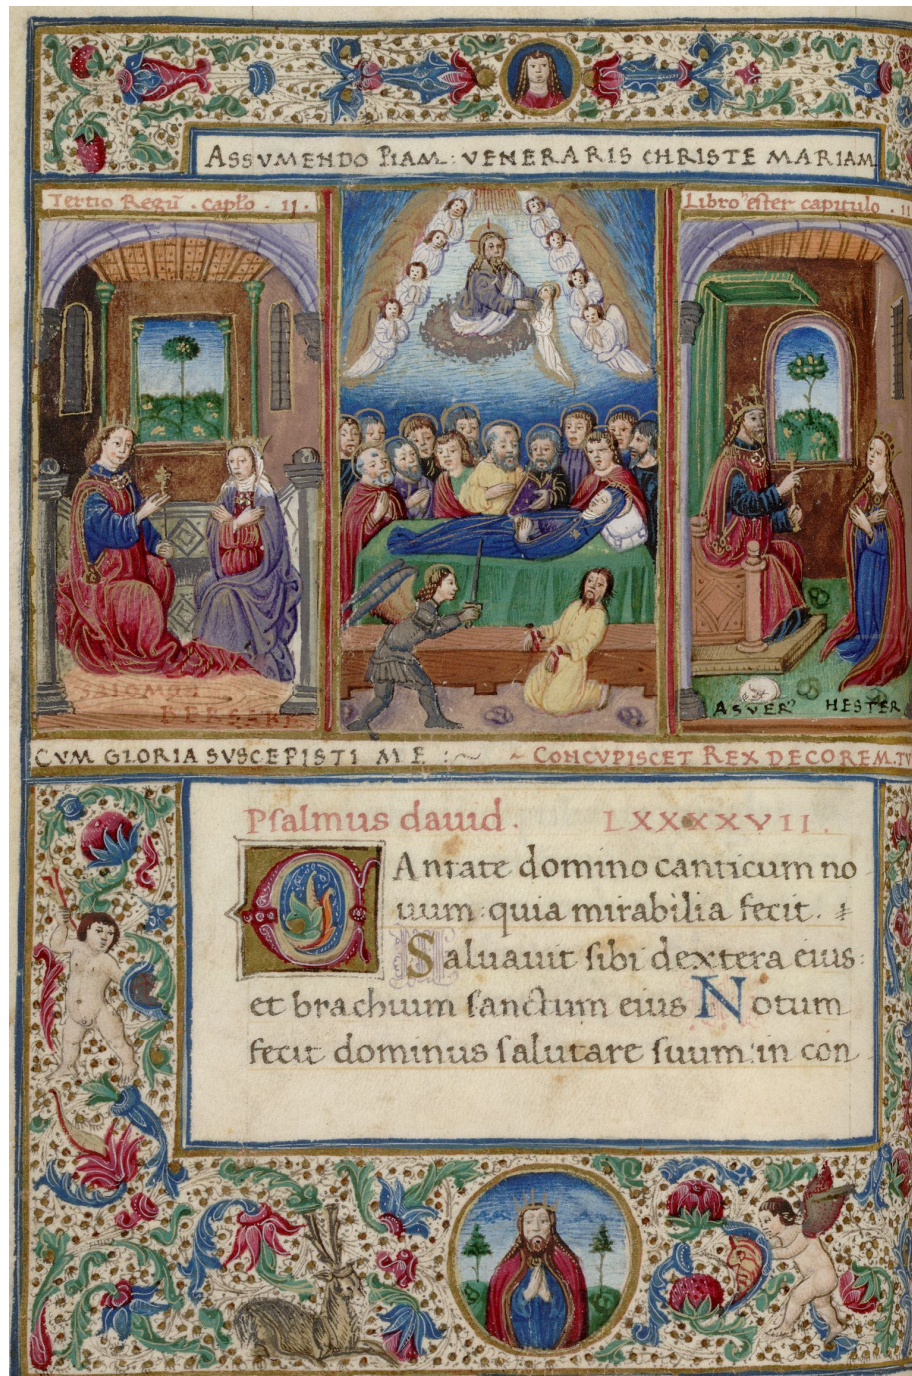 ASSVMENDO PIAM: VENERARIS CHRISTE MARIAM
Tertio Regū. caplo. II.
Libro ester capitulo. II
SALEMOS
BERSABE
ASVER' HESTER
CVM GLORIA SVSCEPISTI ME:~
~ CONCVPISCET REX DECOREM.TV
Psalmus dauid. LXXXXVII.
CAntate domino canticum no
uum: quia mirabilia fecit.
Saluauit sibi dextera eius:
et brachium sanctum eius Notum
fecit dominus salutare suum: in con